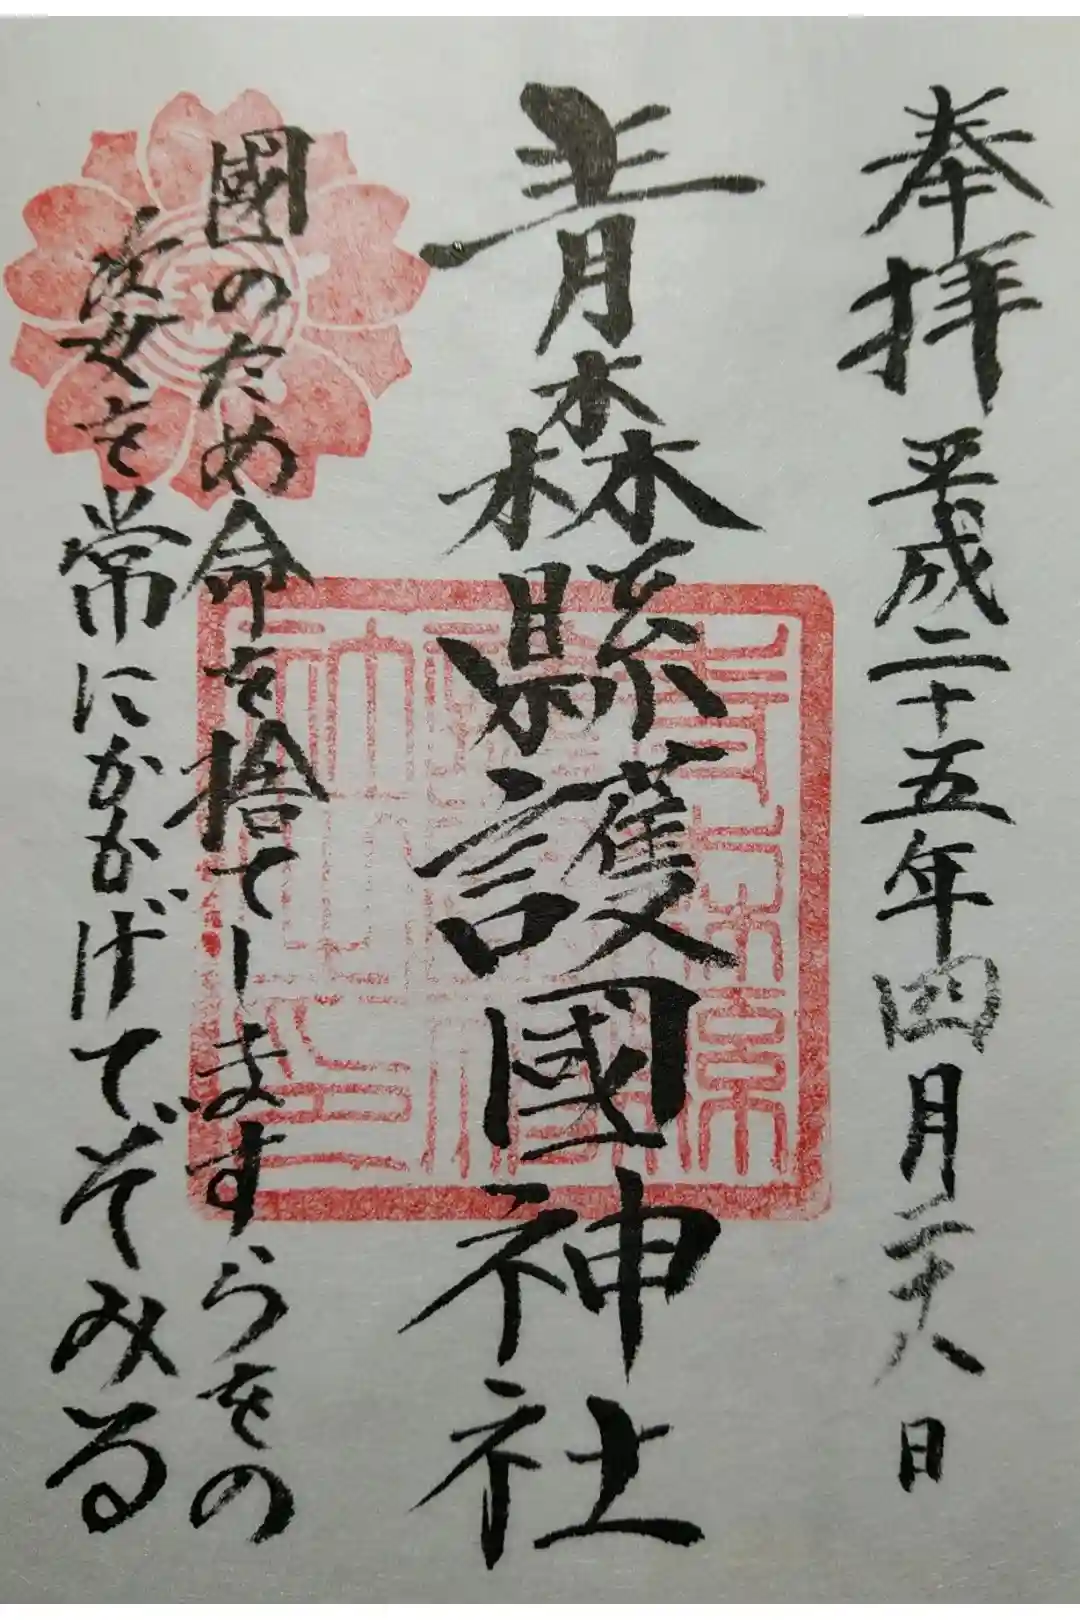 奉拝 平成二十五年四月二十八日
青森縣護國神社
國のため命を捨てしますらをの
姿を常にかかげてぞみる